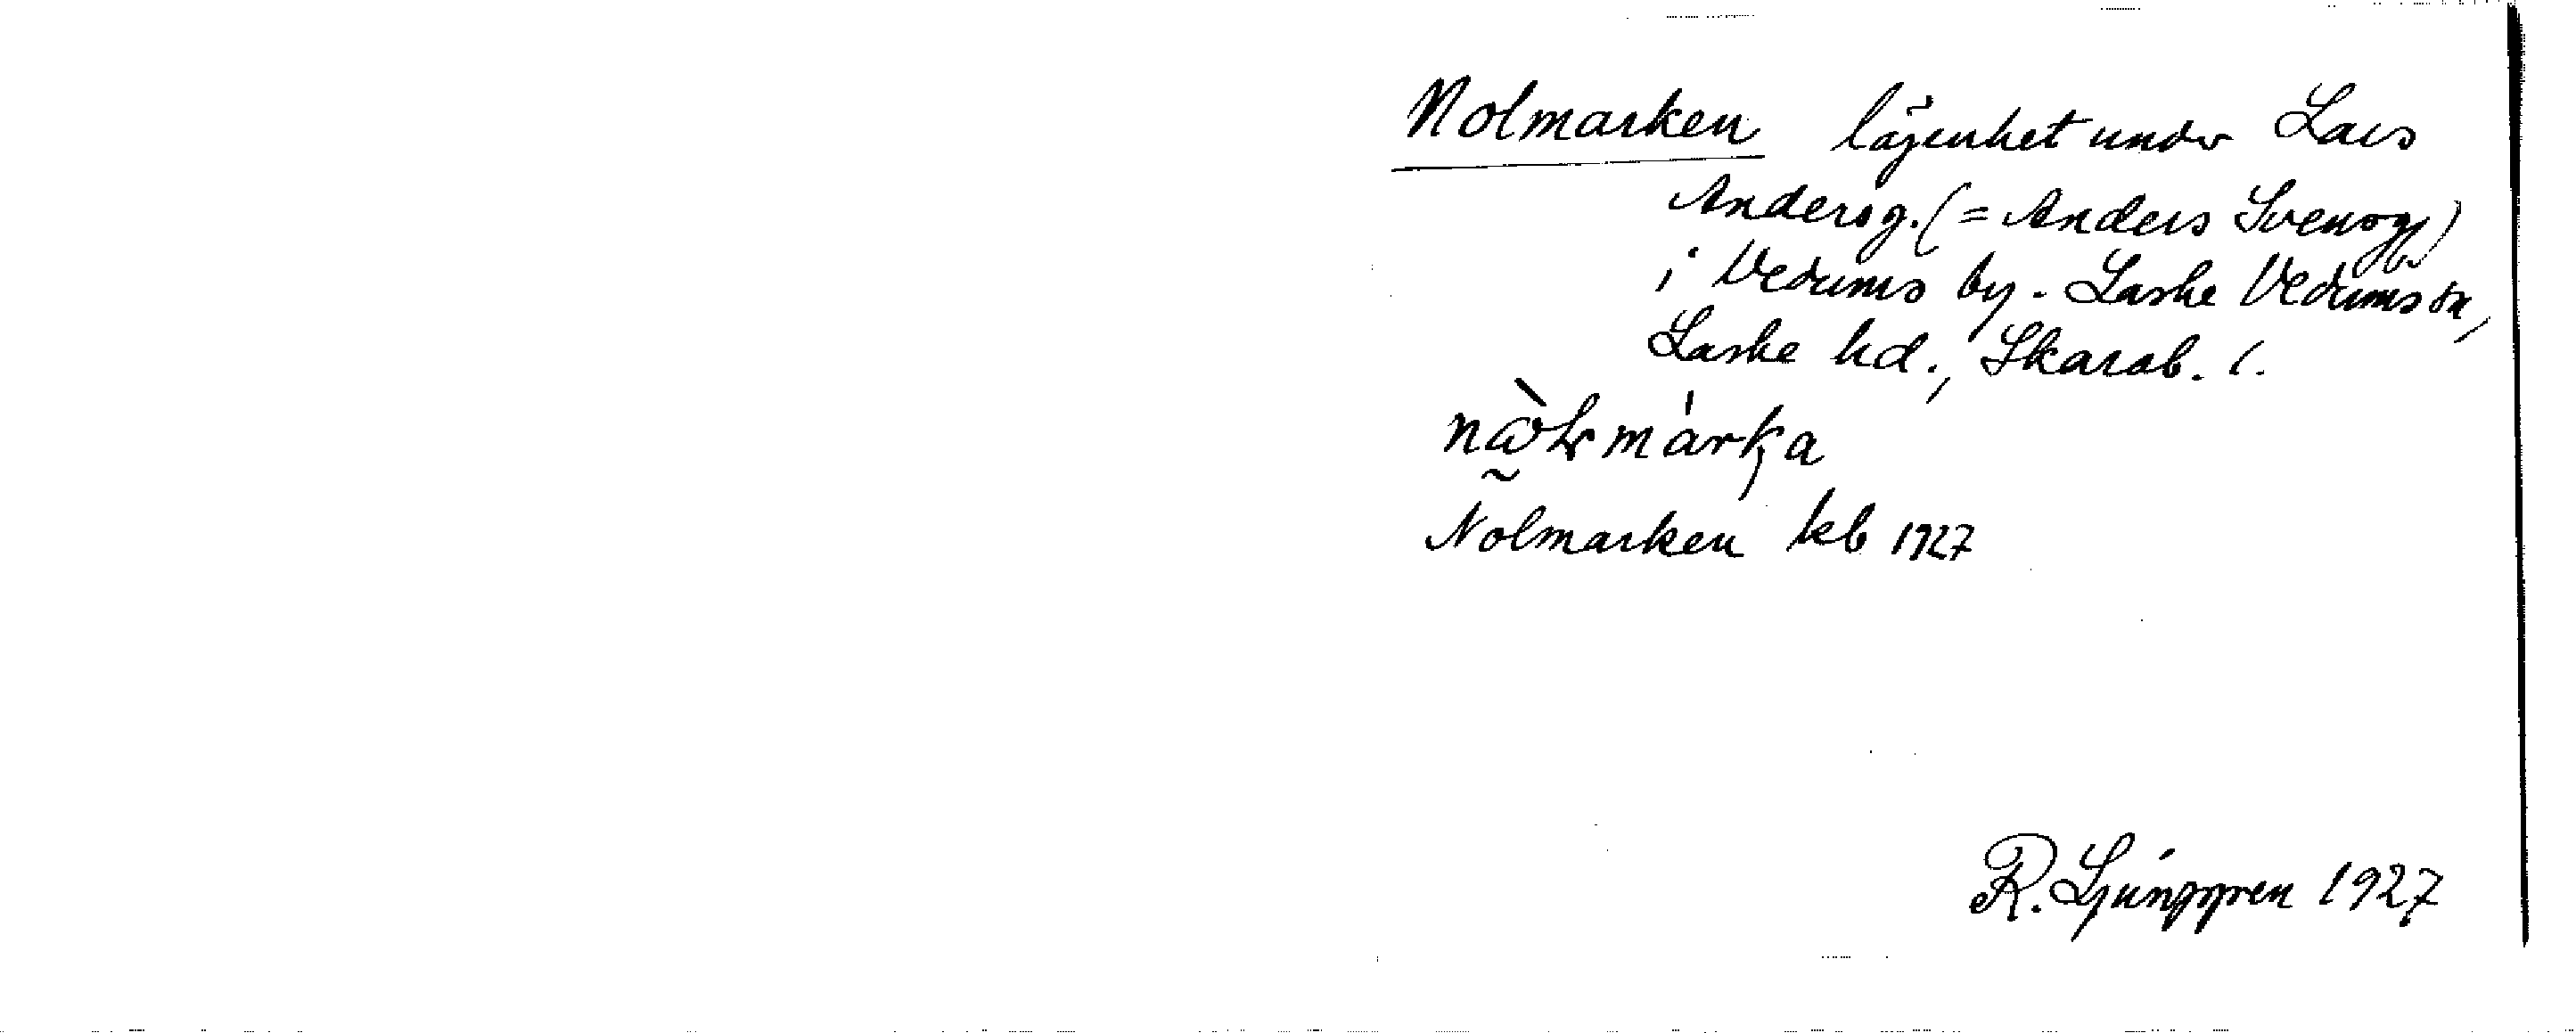 Nolmarken lägenhet under Lars
Andersg. (= Anders Svensg)
i Vedums by. Laske Vedums sn,
Laske hd., Skarab. l.
Nolmarken kb 1927
R. Ljunggren 1927